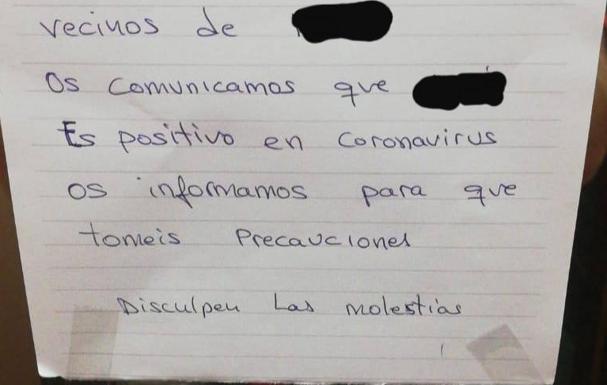 vecinos de
Os comunicamos que
Es positivo en coronavirus
os informamos para que
tomeis Precauciones
Disculpen Las molestias